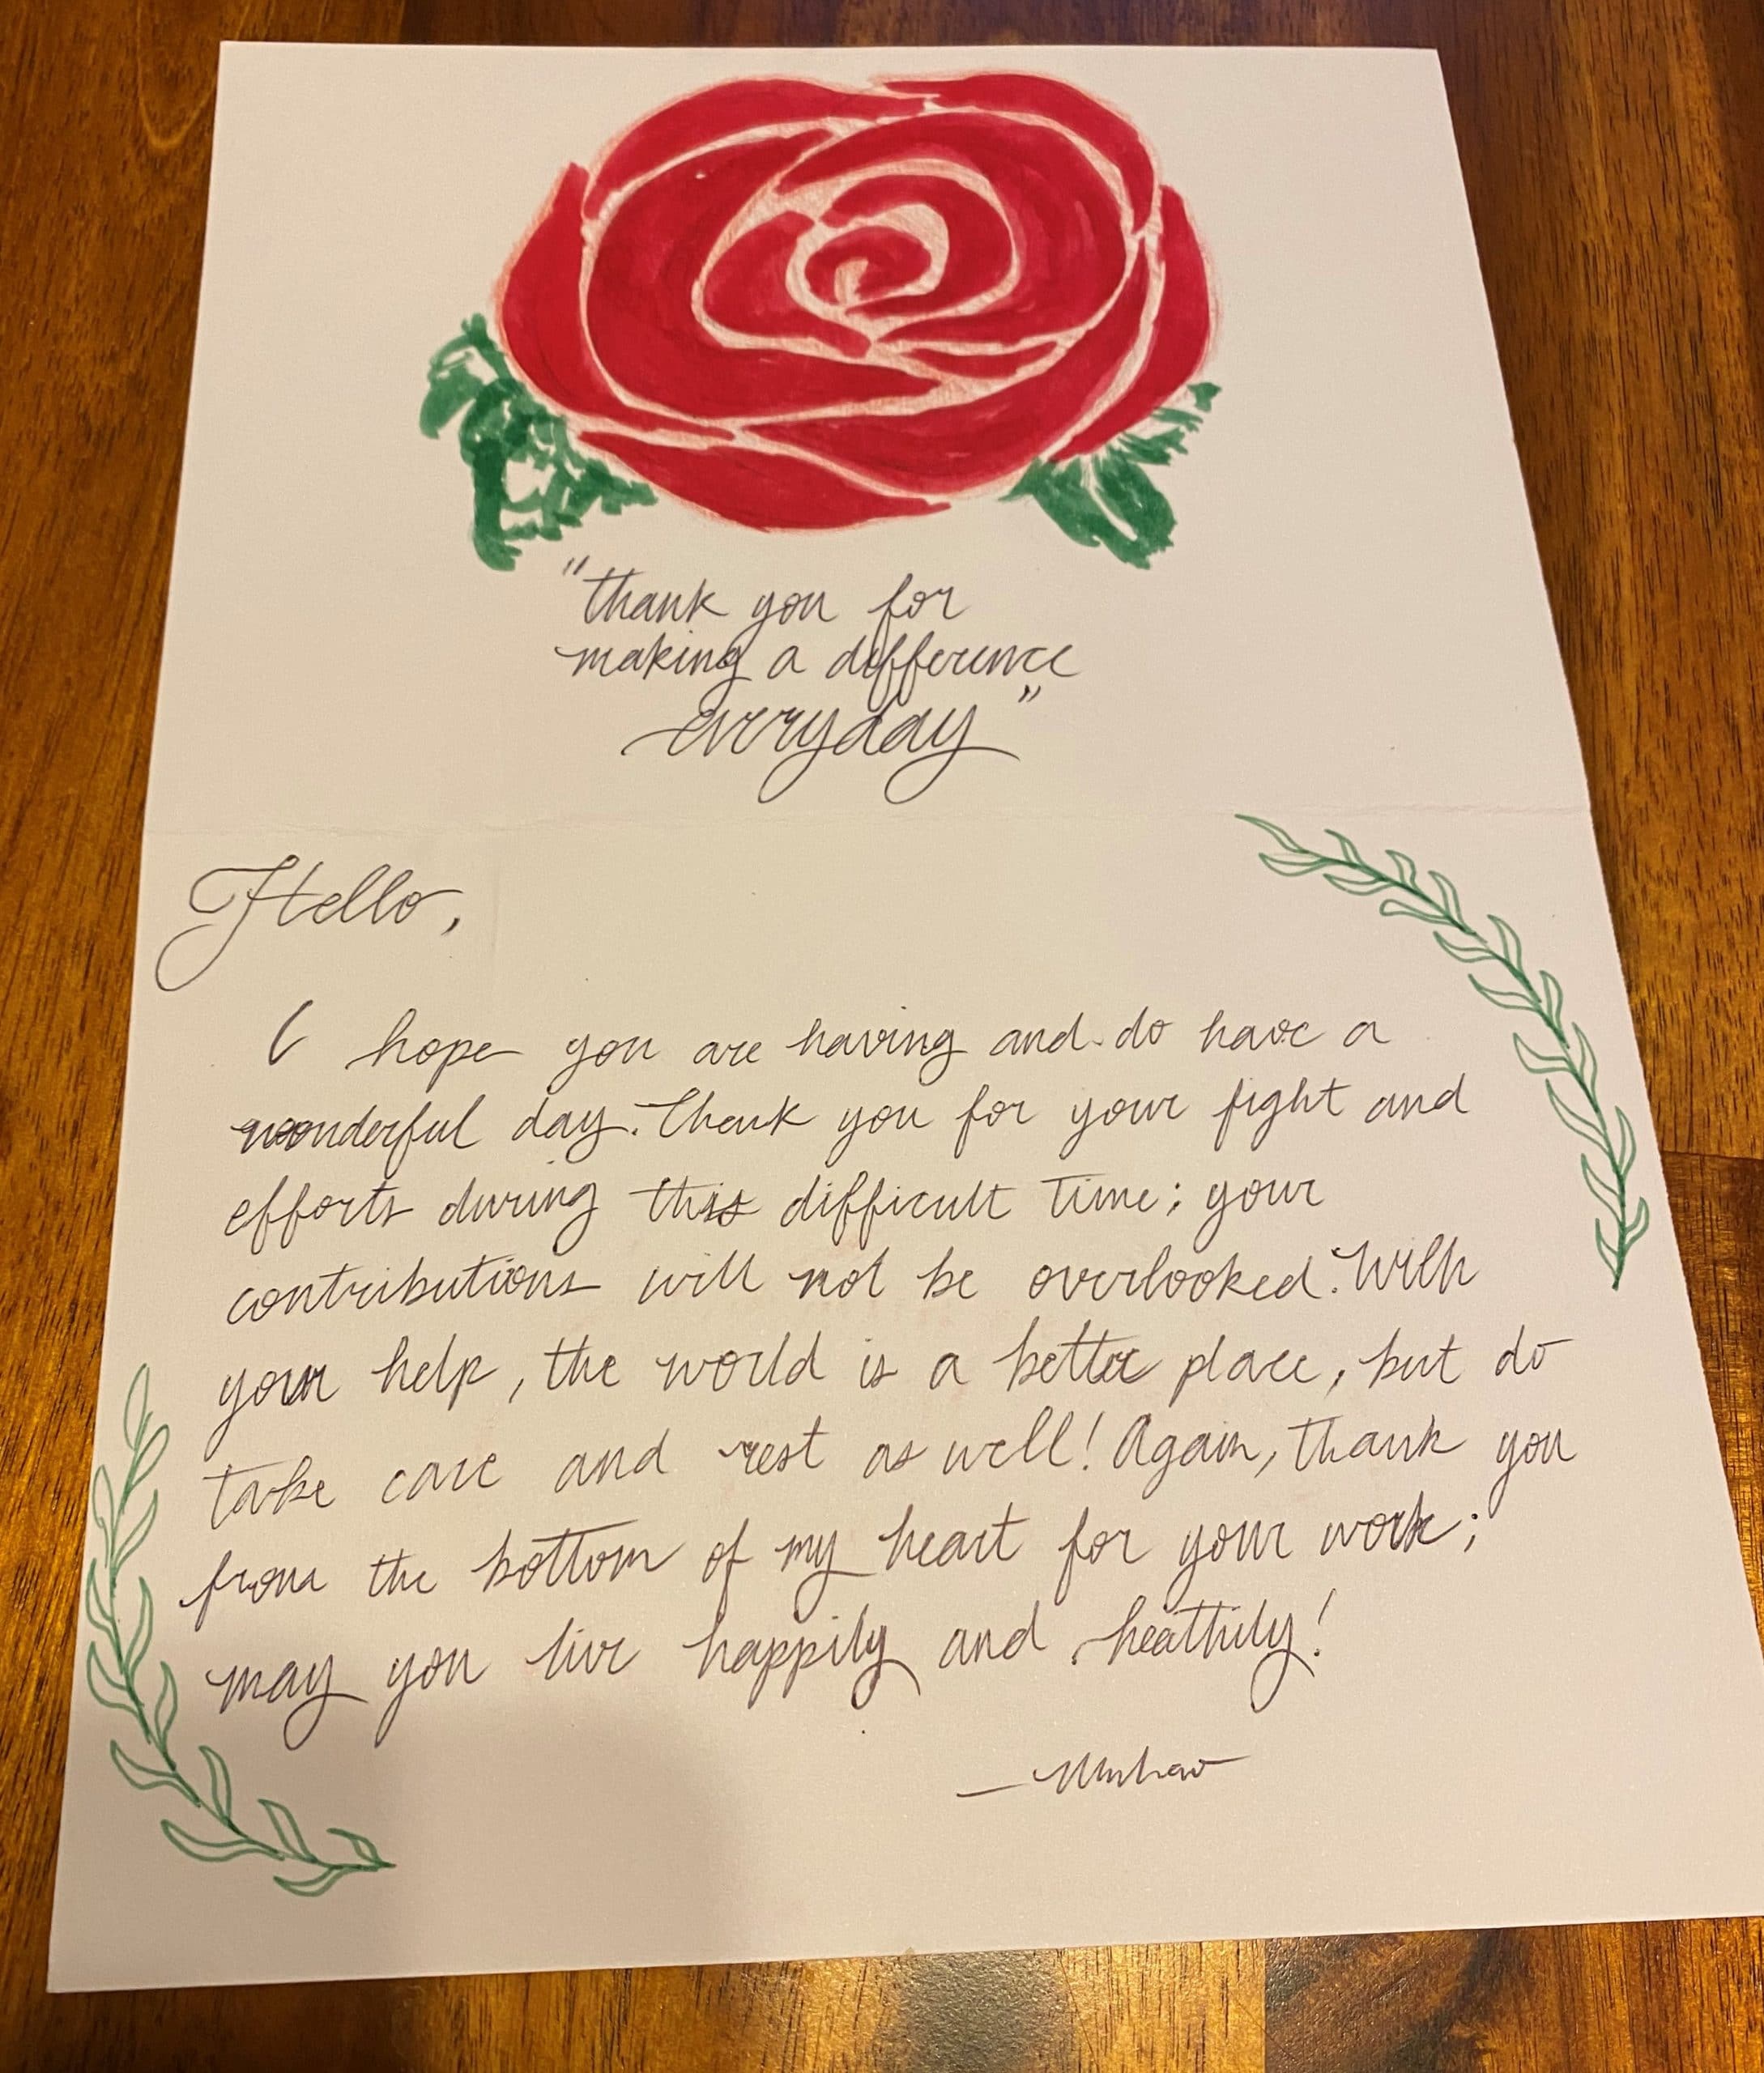 "thank you for
making a difference
everyday"
Hello,
I hope you are having and do have a
wonderful day. Thank you for your fight and
efforts during this difficult time; your
contributions will not be overlooked. With
your help, the world is a better place, but do
take care and rest as well! Again, thank you
from the bottom of my heart for your work;
may you live happily and heathily!